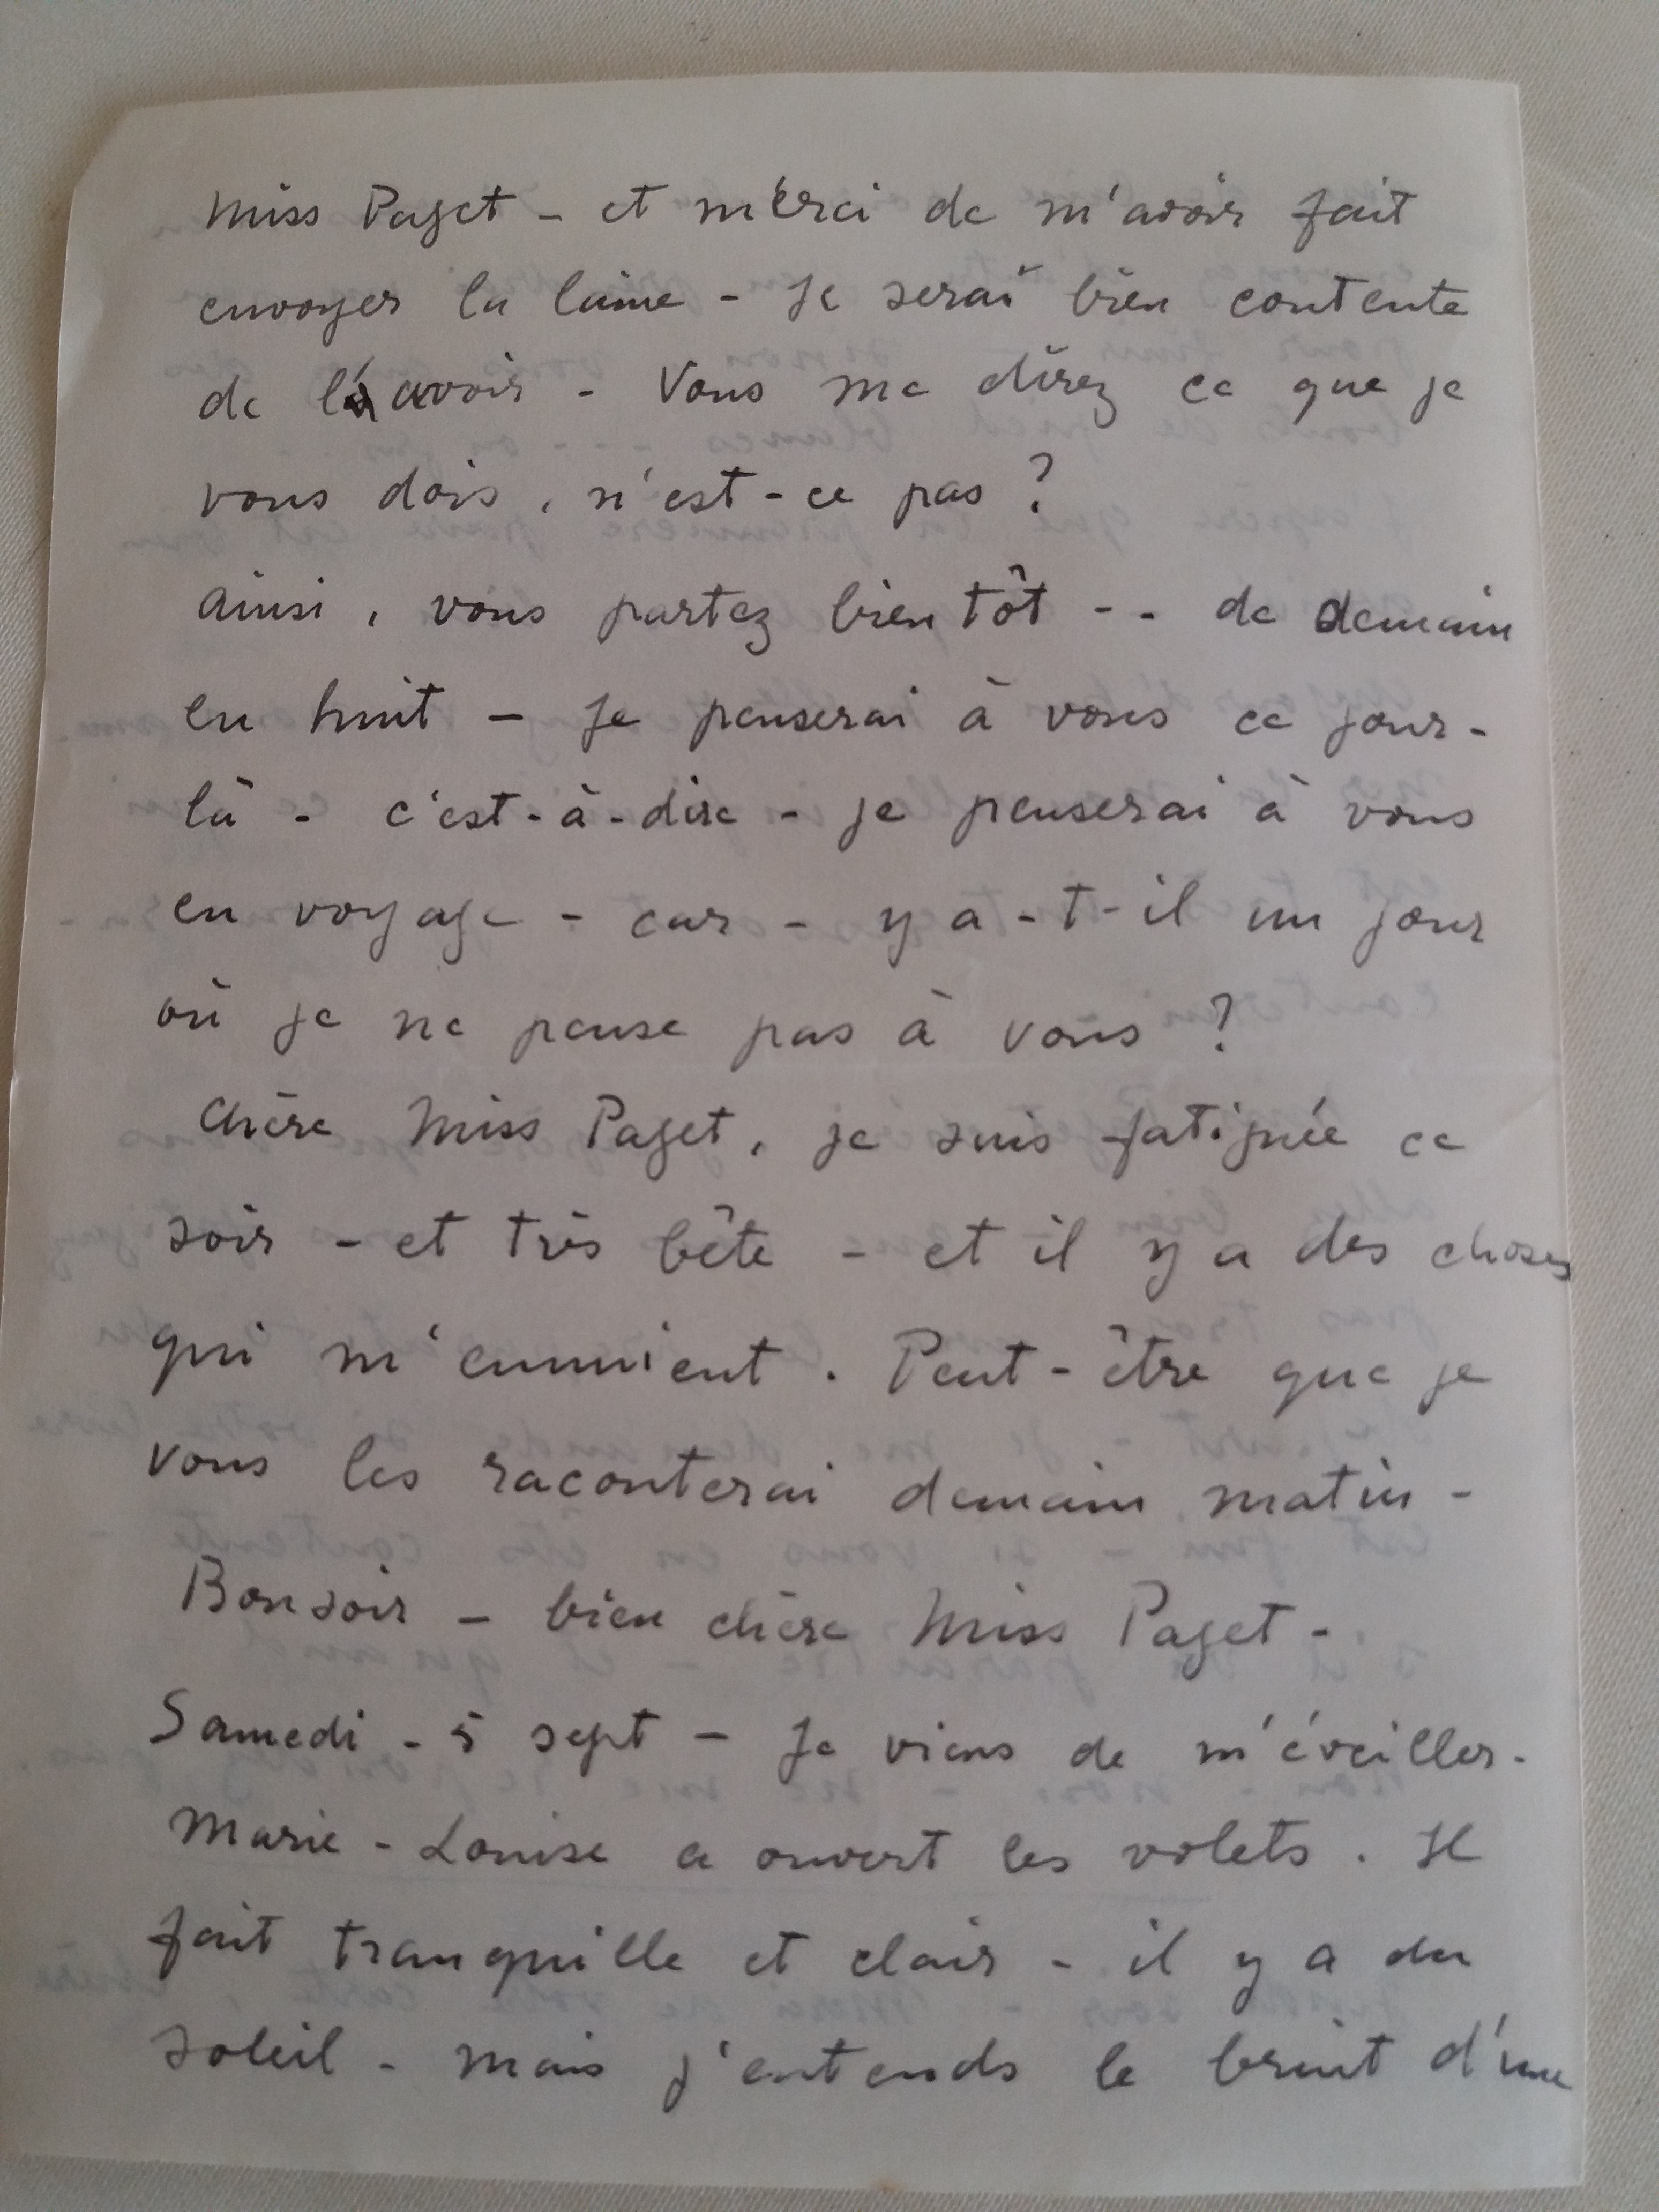 Miss Paget - et merci de m'avoir fait
envoyer la laine - Je serai bien contente
de l'avoir - Vous me direz ce que je
vous dois, n'est-ce pas ?
Ainsi, vous partez bientôt -- de demain
en huit - Je penserai à vous ce jour-
là - c'est-à-dire - je penserai à vous
en voyage - car - y a-t-il un jour
où je ne pense pas à vous ?
Chère Miss Paget, je suis fatiguée ce
soir - et très bête - et il y a des choses
qui m'ennuient. Peut-être que je
vous les raconterai demain matin -
Bonsoir - bien chère Miss Paget -
Samedi - 5 sept - Je viens de m'éveiller -
Marie-Louise a ouvert les volets. Il
fait tranquille et clair - il y a du
soleil - mais j'entends le bruit d'une